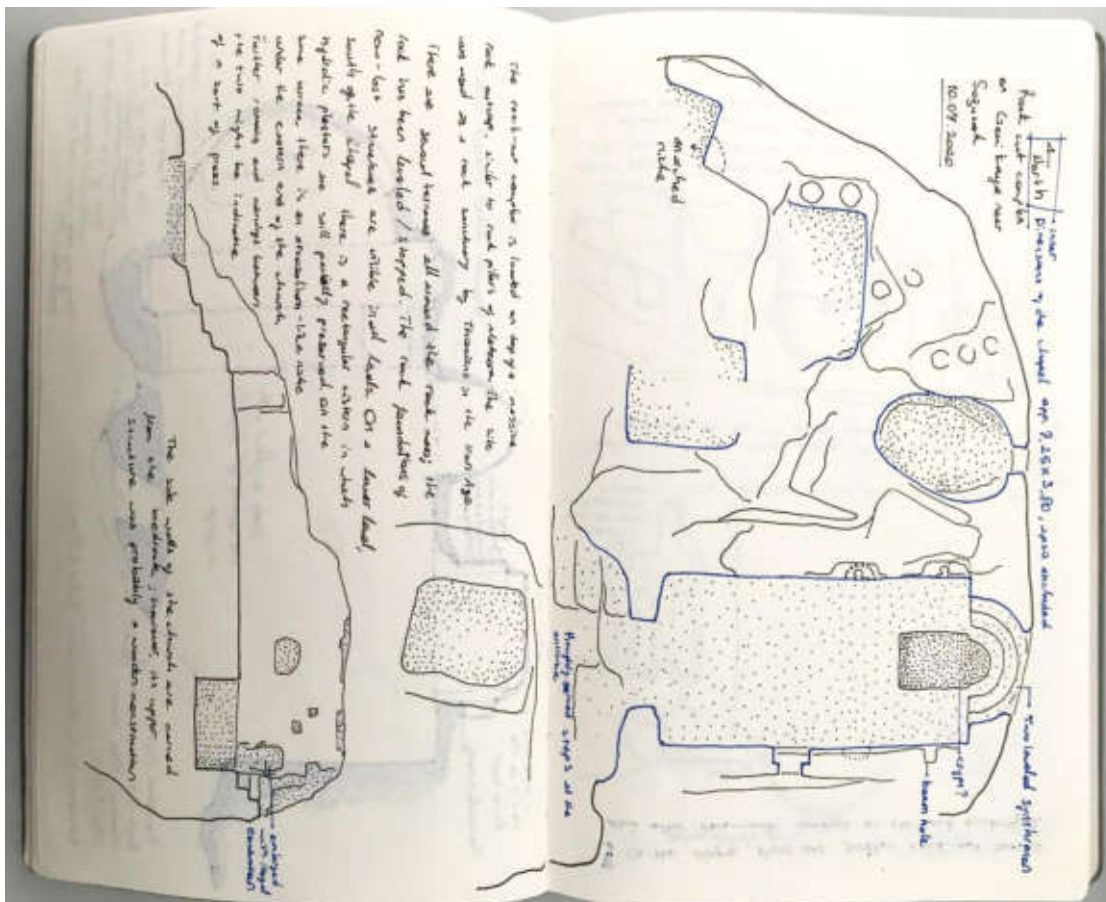 North
Rock cut complex
on Gemikaya near
Soğucak
10.07.2020
inner
Dimensions of the chapel app 7.25 x 3.80, apse excluded
arched
niche
Two leveled synthronon
crypt?
beam hole
steps at the
entrance
The rock-cut complex is located on top of a massive
rock outcrop, similar to rock pillars of Meteora. The site
was used as a rock sanctuary by Thracians in the Iron Age.
There are several terraces all around the rock mass; the
rock has been leveled / stepped. The rock foundations of
now-lost structures are visible in all levels. On a lower level,
south of the chapel there is a rectangular cistern in which
hydrolic plasters are still partially preserved. On the
same terrace, there is an arcosolium-like niche
under the eastern end of the church.
Further rooms and carvings between
the two might be indicative
of a sort of press.
The side walls of the church are carved
from the bedrock; however, its upper
structure was probably a wooden
enlarged
with illegal
excavation